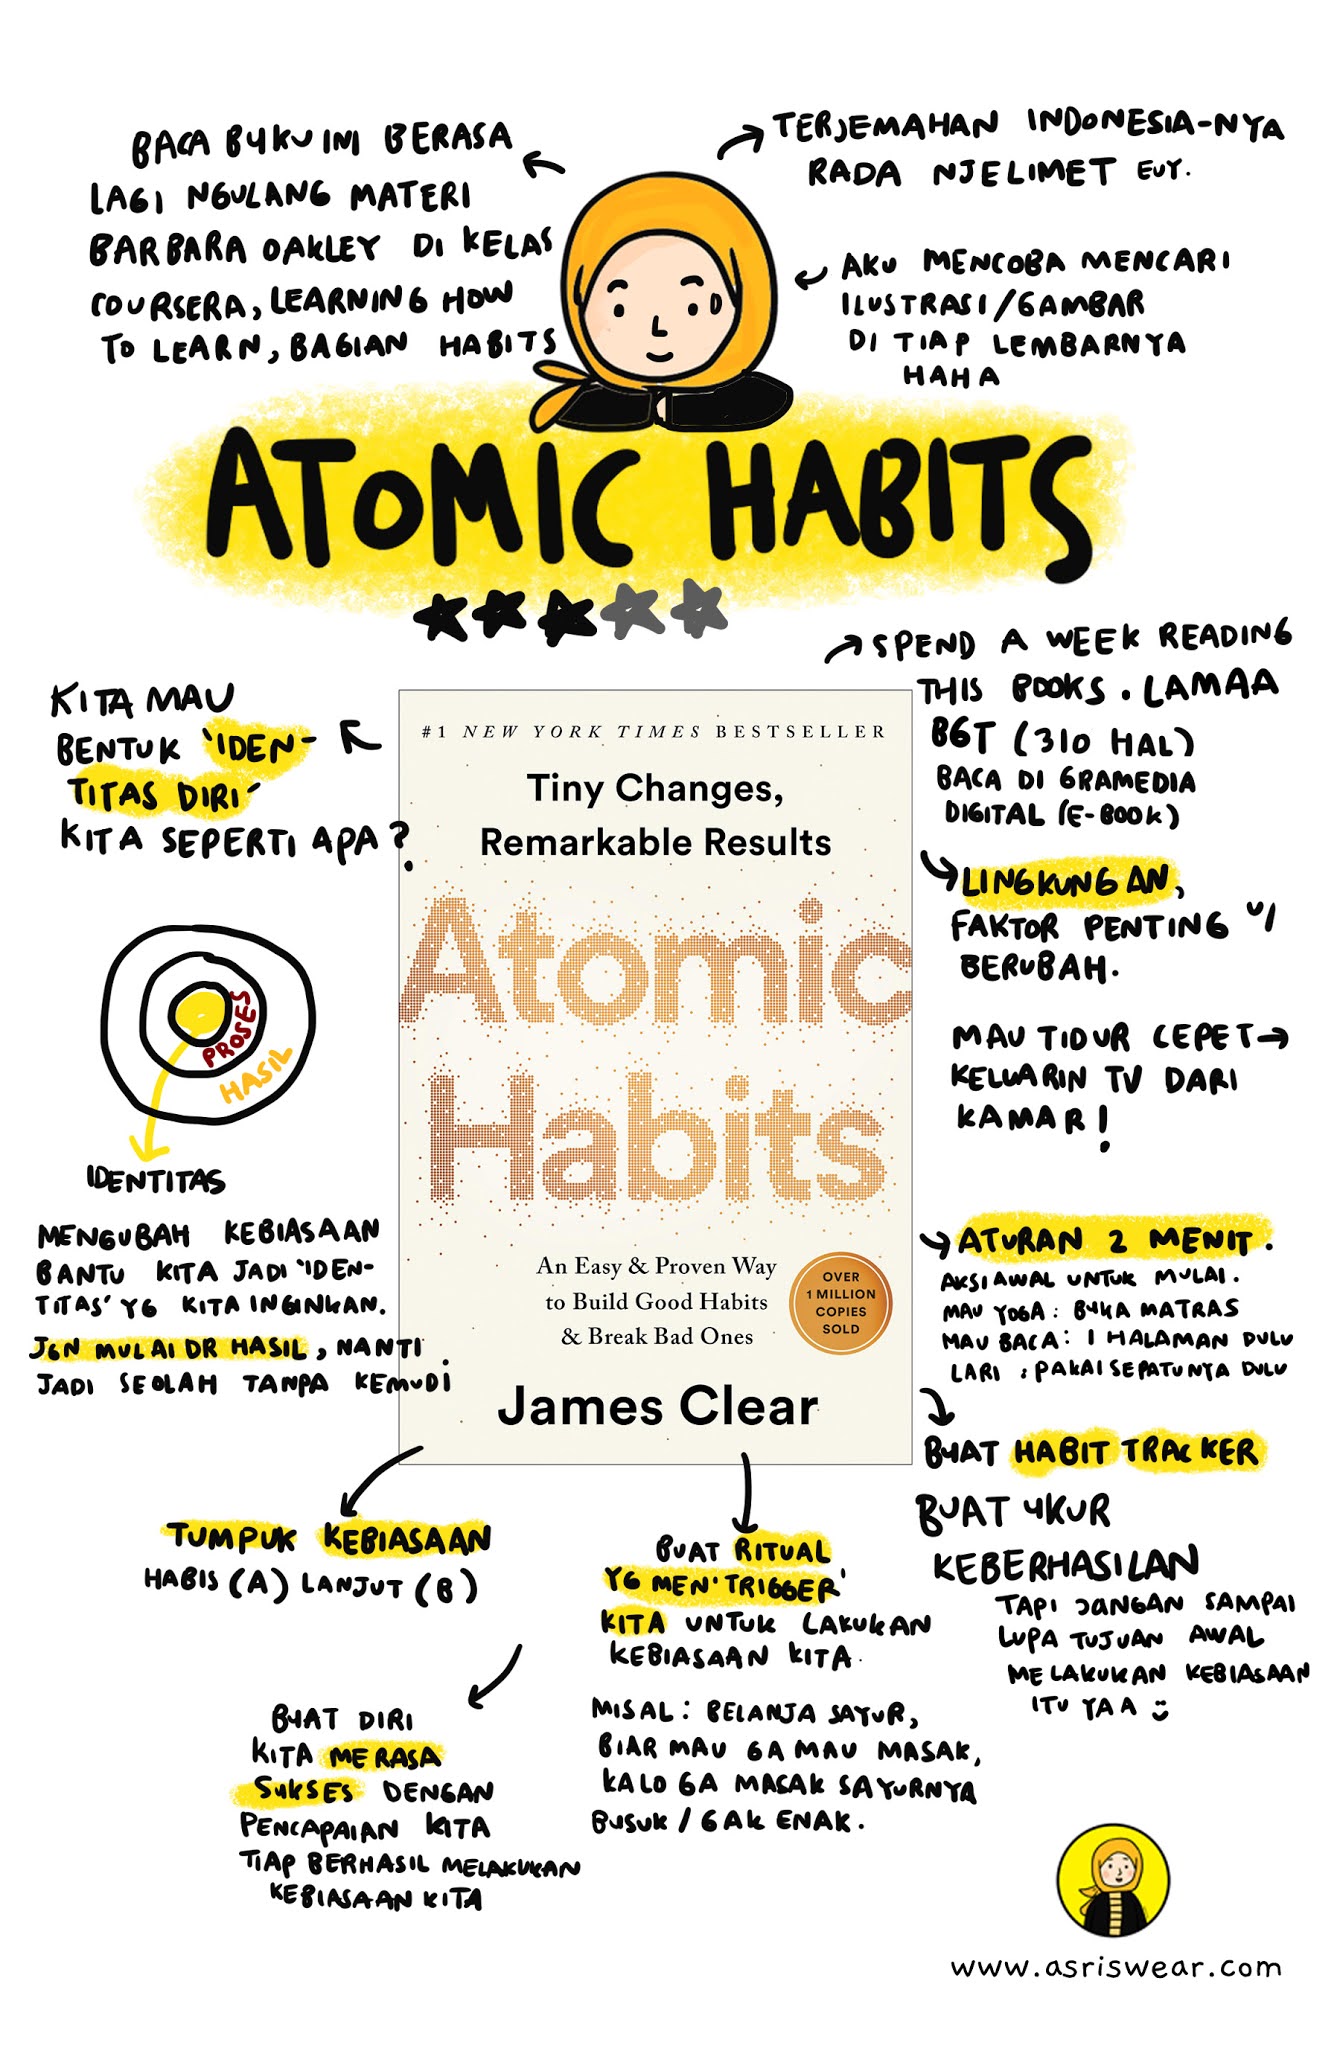 BACA BUKU INI BERASA
LAGI NGULANG MATERI
BARBARA OAKLEY DI KELAS
COURSERA, LEARNING HOW
TO LEARN, BAGIAN HABITS
TERJEMAHAN INDONESIA-NYA
RADA NJELIMET EUY.
AKU MENCOBA MENCARI
ILUSTRASI/GAMBAR
DI TIAP LEMBARNYA
HAHA
ATOMIC HABITS
KITA MAU
BENTUK 'IDEN-
TITAS DIRI'
KITA SEPERTI APA?
PROSES
HASIL
IDENTITAS
MENGUBAH KEBIASAAN
BANTU KITA JADI 'IDEN-
TITAS' YG KITA INGINKAN.
JGN MULAI DR HASIL, NANTI
JADI SEOLAH TANPA KEMUDI
#1 NEW YORK TIMES BESTSELLER
Tiny Changes,
Remarkable Results
Atomic
Habits
An Easy & Proven Way
to Build Good Habits
& Break Bad Ones
OVER
1 MILLION
COPIES
SOLD
James Clear
SPEND A WEEK READING
THIS BOOKS. LAMAA
BGT (310 HAL)
BACA DI GRAMEDIA
DIGITAL (E-BOOK)
LINGKUNGAN,
FAKTOR PENTING U/
BERUBAH.
MAU TIDUR CEPET→
KELUARIN TV DARI
KAMAR!
ATURAN 2 MENIT.
AKSI AWAL UNTUK MULAI.
MAU YOGA: BUKA MATRAS
MAU BACA: 1 HALAMAN DULU
LARI : PAKAI SEPATUNYA DULU
BUAT HABIT TRACKER
BUAT UKUR
KEBERHASILAN
TAPI JANGAN SAMPAI
LUPA TUJUAN AWAL
MELAKUKAN KEBIASAAN
ITU YAA
TUMPUK KEBIASAAN
HABIS (A) LANJUT (B)
BUAT RITUAL
YG MEN'TRIGGER'
KITA UNTUK LAKUKAN
KEBIASAAN KITA.
MISAL: BELANJA SAYUR,
BIAR MAU GA MAU MASAK,
KALO GA MASAK SAYURNYA
BUSUK / GAK ENAK.
BUAT DIRI
KITA MERASA
SUKSES DENGAN
PENCAPAIAN KITA
TIAP BERHASIL MELAKUKAN
KEBIASAAN KITA
www.asriswear.com